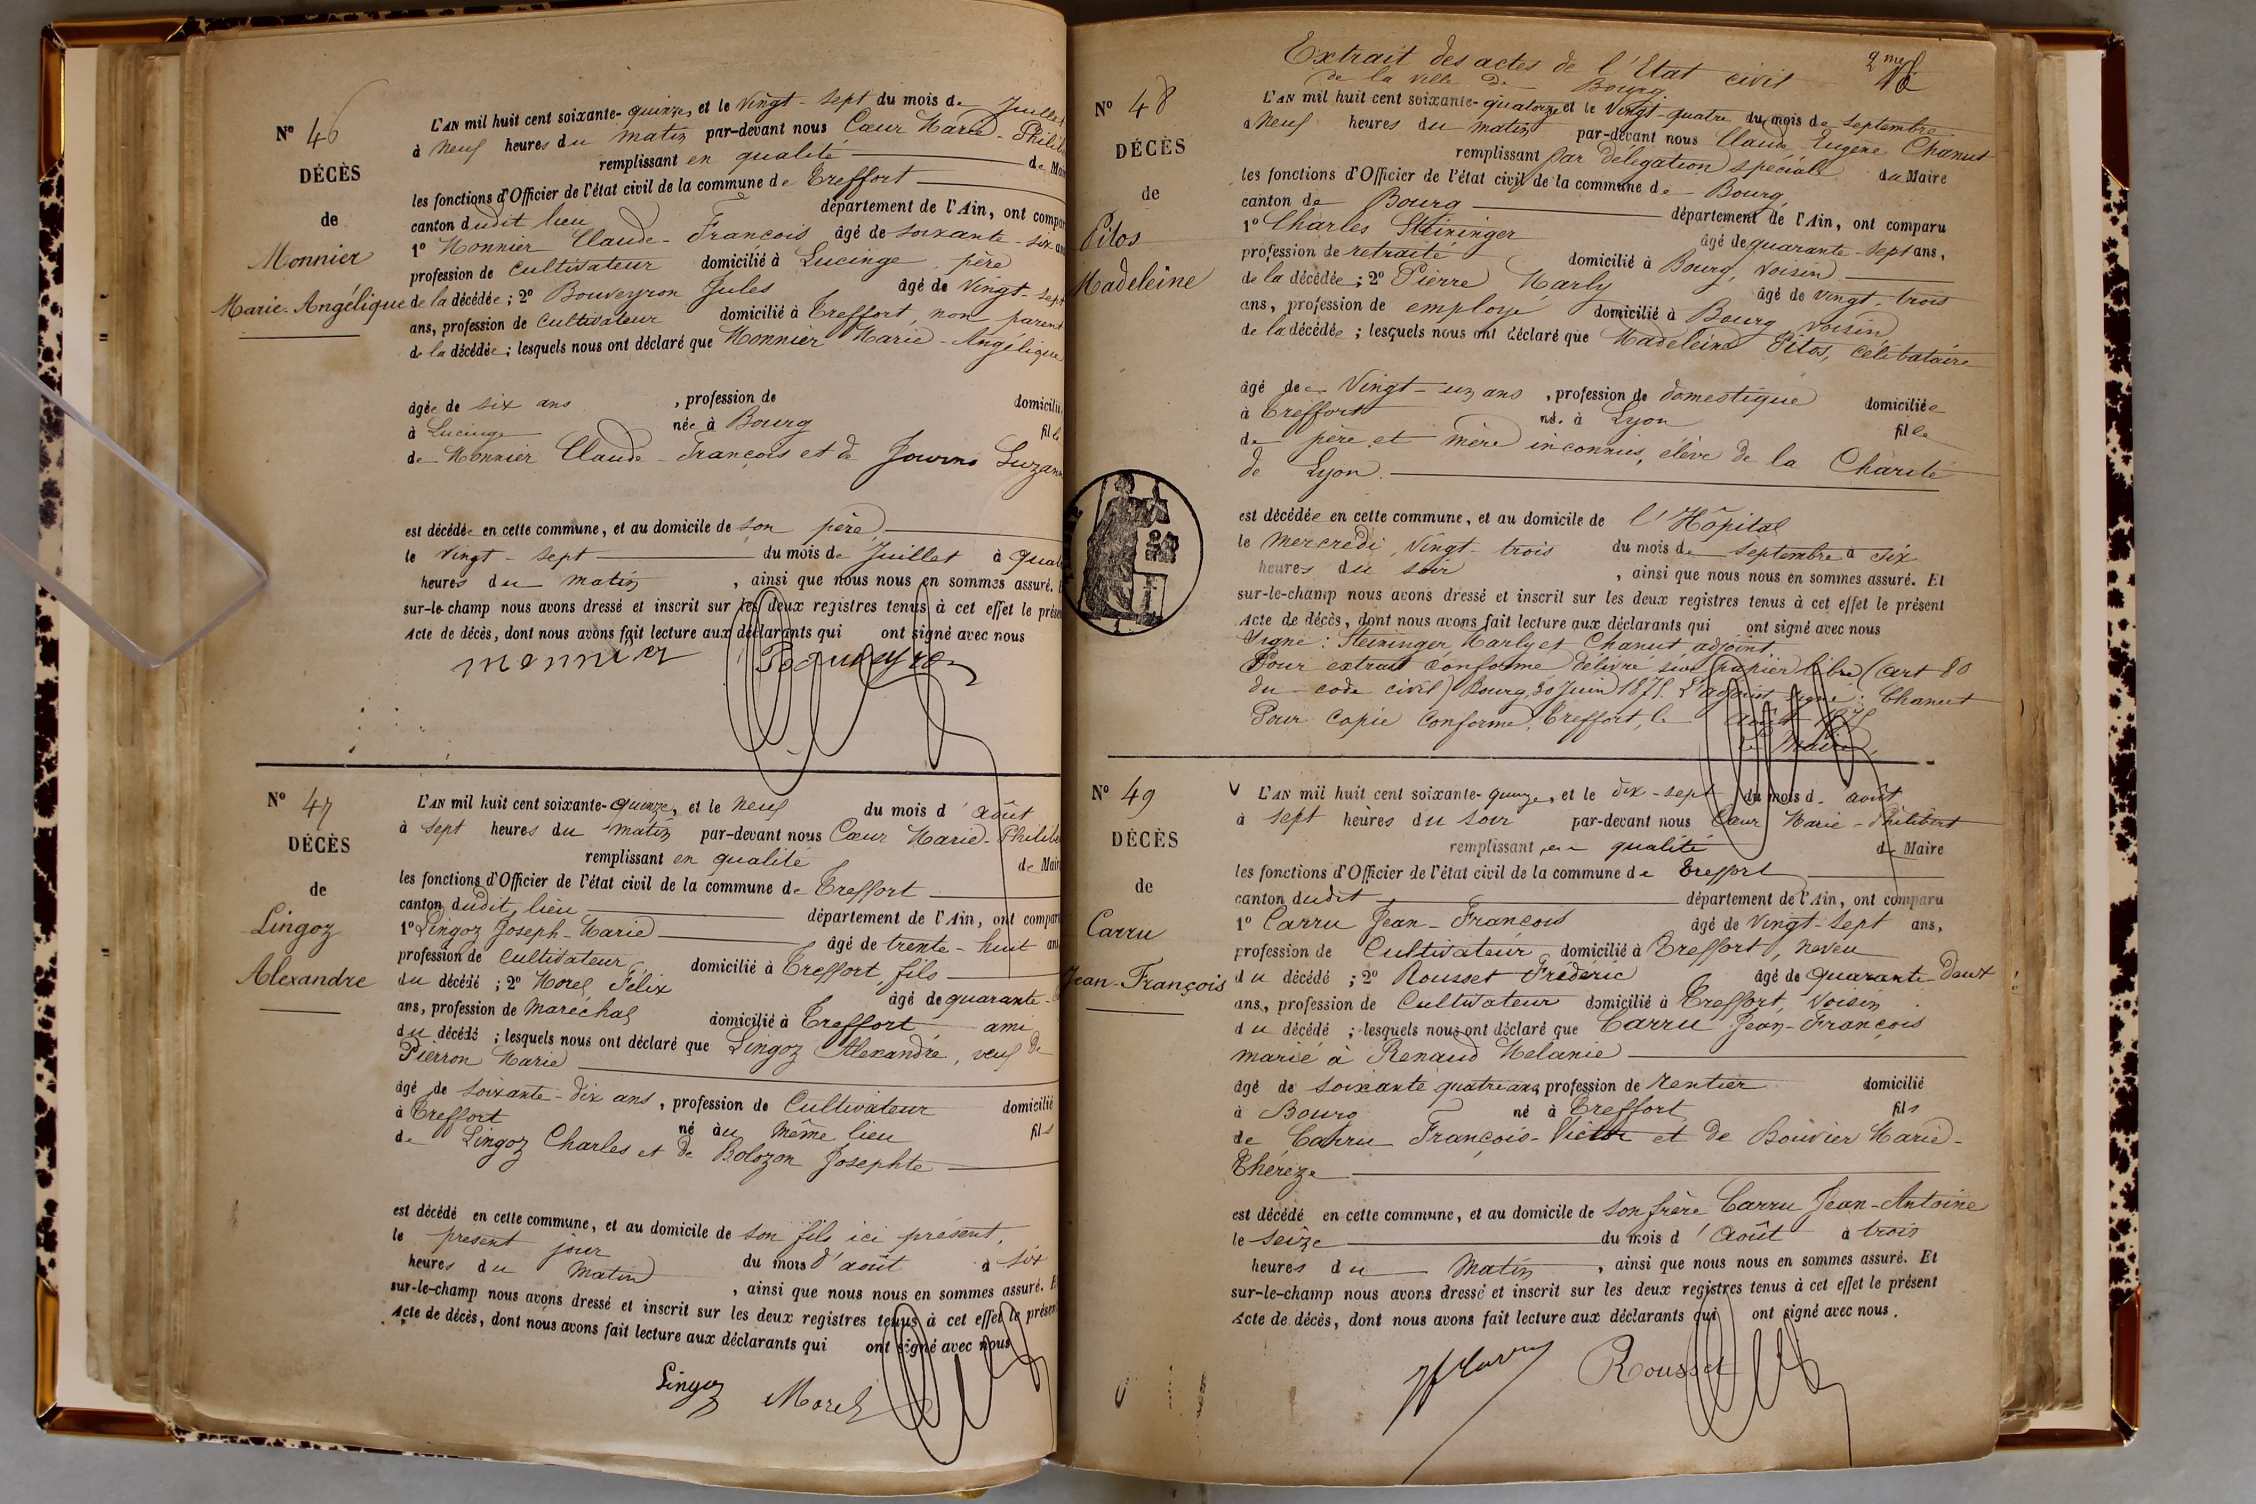 N° 46
DÉCÈS
de
Monnier
Marie-Angélique
L'AN mil huit cent soixante-quinze, et le vingt-sept du mois de Juillet
à neuf heures du matin par-devant nous Cœur Marie-Philib
remplissant en qualité de Mair
les fonctions d'Officier de l'état civil de la commune de Treffort
canton dudit lieu département de l'Ain, ont compar
1° Monnier Claude-François âgé de soixante-six an
profession de cultivateur domicilié à Lucinge, père
de la décédée; 2° Bouveyron Jules âgé de vingt-sept
ans, profession de cultivateur domicilié à Treffort, non parent
de la décédée; lesquels nous ont déclaré que Monnier Marie-Angélique
âgée de six ans , profession de domicilié
à Lucinge née à Bourg fille
de Monnier Claude-François et de Suzann
est décédée en cette commune, et au domicile de son père,
le vingt-sept du mois de Juillet à quat
heures du matin , ainsi que nous nous en sommes assuré. E
sur-le-champ nous avons dressé et inscrit sur les deux registres tenus à cet effet le présen
Acte de décès, dont nous avons fait lecture aux déclarants qui ont signé avec nous
monnier
N° 47
DÉCÈS
de
Lingoz
Alexandre
L'AN mil huit cent soixante-quinze, et le neuf du mois d'août
à sept heures du matin par-devant nous Cœur Marie-Philib
remplissant en qualité de Mair
les fonctions d'Officier de l'état civil de la commune de Treffort
canton dudit lieu département de l'Ain, ont compar
1° Lingoz Joseph-Marie âgé de trente-huit an
profession de cultivateur domicilié à Treffort, fils
du décédé; 2° Morel Félix âgé de quarante-
ans, profession de maréchal domicilié à Treffort ami
du décédé; lesquels nous ont déclaré que Lingoz Alexandre, veuf de
Pierron Marie
âgé de soixante-dix ans, profession de cultivateur domicilié
à Treffort né au même lieu fils
de Lingoz Charles et de Bolozon Josephte
est décédé en cette commune, et au domicile de son fils ici présent,
le present jour du mois d'août à six
heures du matin , ainsi que nous nous en sommes assuré. E
sur-le-champ nous avons dressé et inscrit sur les deux registres tenus à cet effet le présen
Acte de décès, dont nous avons fait lecture aux déclarants qui ont signé avec nous
Lingoz Morel
Extrait des actes de l'Etat civil
de la ville de Bourg.
N° 48
DÉCÈS
de
Pitos
Madeleine
L'AN mil huit cent soixante-quatorze et le vingt-quatre du mois de septembre
à neuf heures du matin par-devant nous Claude Eugène Chanut
remplissant par délégation spéciale du Maire
les fonctions d'Officier de l'état civil de la commune de Bourg
canton de Bourg département de l'Ain, ont comparu
1° Charles Steininger âgé de quarante-sept ans,
profession de retraité domicilié à Bourg, voisin
de la décédée; 2° Pierre Marly âgé de vingt-trois
ans, profession de employé domicilié à Bourg voisin
de la décédée; lesquels nous ont déclaré que Madeleine Pitos, célibataire
âgé de vingt-un ans, profession de domestique domiciliée
à Treffort né à Lyon fille
de père et mère inconnus, élève de la Charité
de Lyon.
est décédée en cette commune, et au domicile de l'Hôpital
le mercredi, vingt-trois du mois de septembre à six
heures du soir , ainsi que nous nous en sommes assuré. Et
sur-le-champ nous avons dressé et inscrit sur les deux registres tenus à cet effet le présent
Acte de décès, dont nous avons fait lecture aux déclarants qui ont signé avec nous
Signé: Steininger, Marly et Chanut, adjoint.
Pour extrait conforme délivré sur papier libre (art 80
du code civil) Bourg, 30 Juin 1875. L'adjoint signé: Chanut
Pour copie conforme, Treffort, le août 1875
Le Maire,
N° 49
DÉCÈS
de
Carru
Jean-François
L'AN mil huit cent soixante-quinze, et le dix-sept du mois d'août
à sept heures du soir par-devant nous Cœur Marie-Philibert
remplissant en qualité de Maire
les fonctions d'Officier de l'état civil de la commune de Treffort
canton dudit département de l'Ain, ont comparu
1° Carru Jean-François âgé de vingt-sept ans,
profession de Cultivateur domicilié à Treffort, neveu
du décédé; 2° Rousset Frédéric âgé de quarante-deux
ans, profession de cultivateur domicilié à Treffort, voisin
du décédé; lesquels nous ont déclaré que Carru Jean-François
marié à Renaud Melanie
âgé de soixante quatre ans, profession de rentier domicilié
à Bourg né à Treffort fils
de Carru François-Victor et de Bouvier Marie-
Thérèze
est décédé en cette commune, et au domicile de son frère Carru Jean-Antoine
le seize du mois d'août à trois
heures du matin , ainsi que nous nous en sommes assuré. Et
sur-le-champ nous avons dressé et inscrit sur les deux registres tenus à cet effet le présent
Acte de décès, dont nous avons fait lecture aux déclarants qui ont signé avec nous.
Rousset